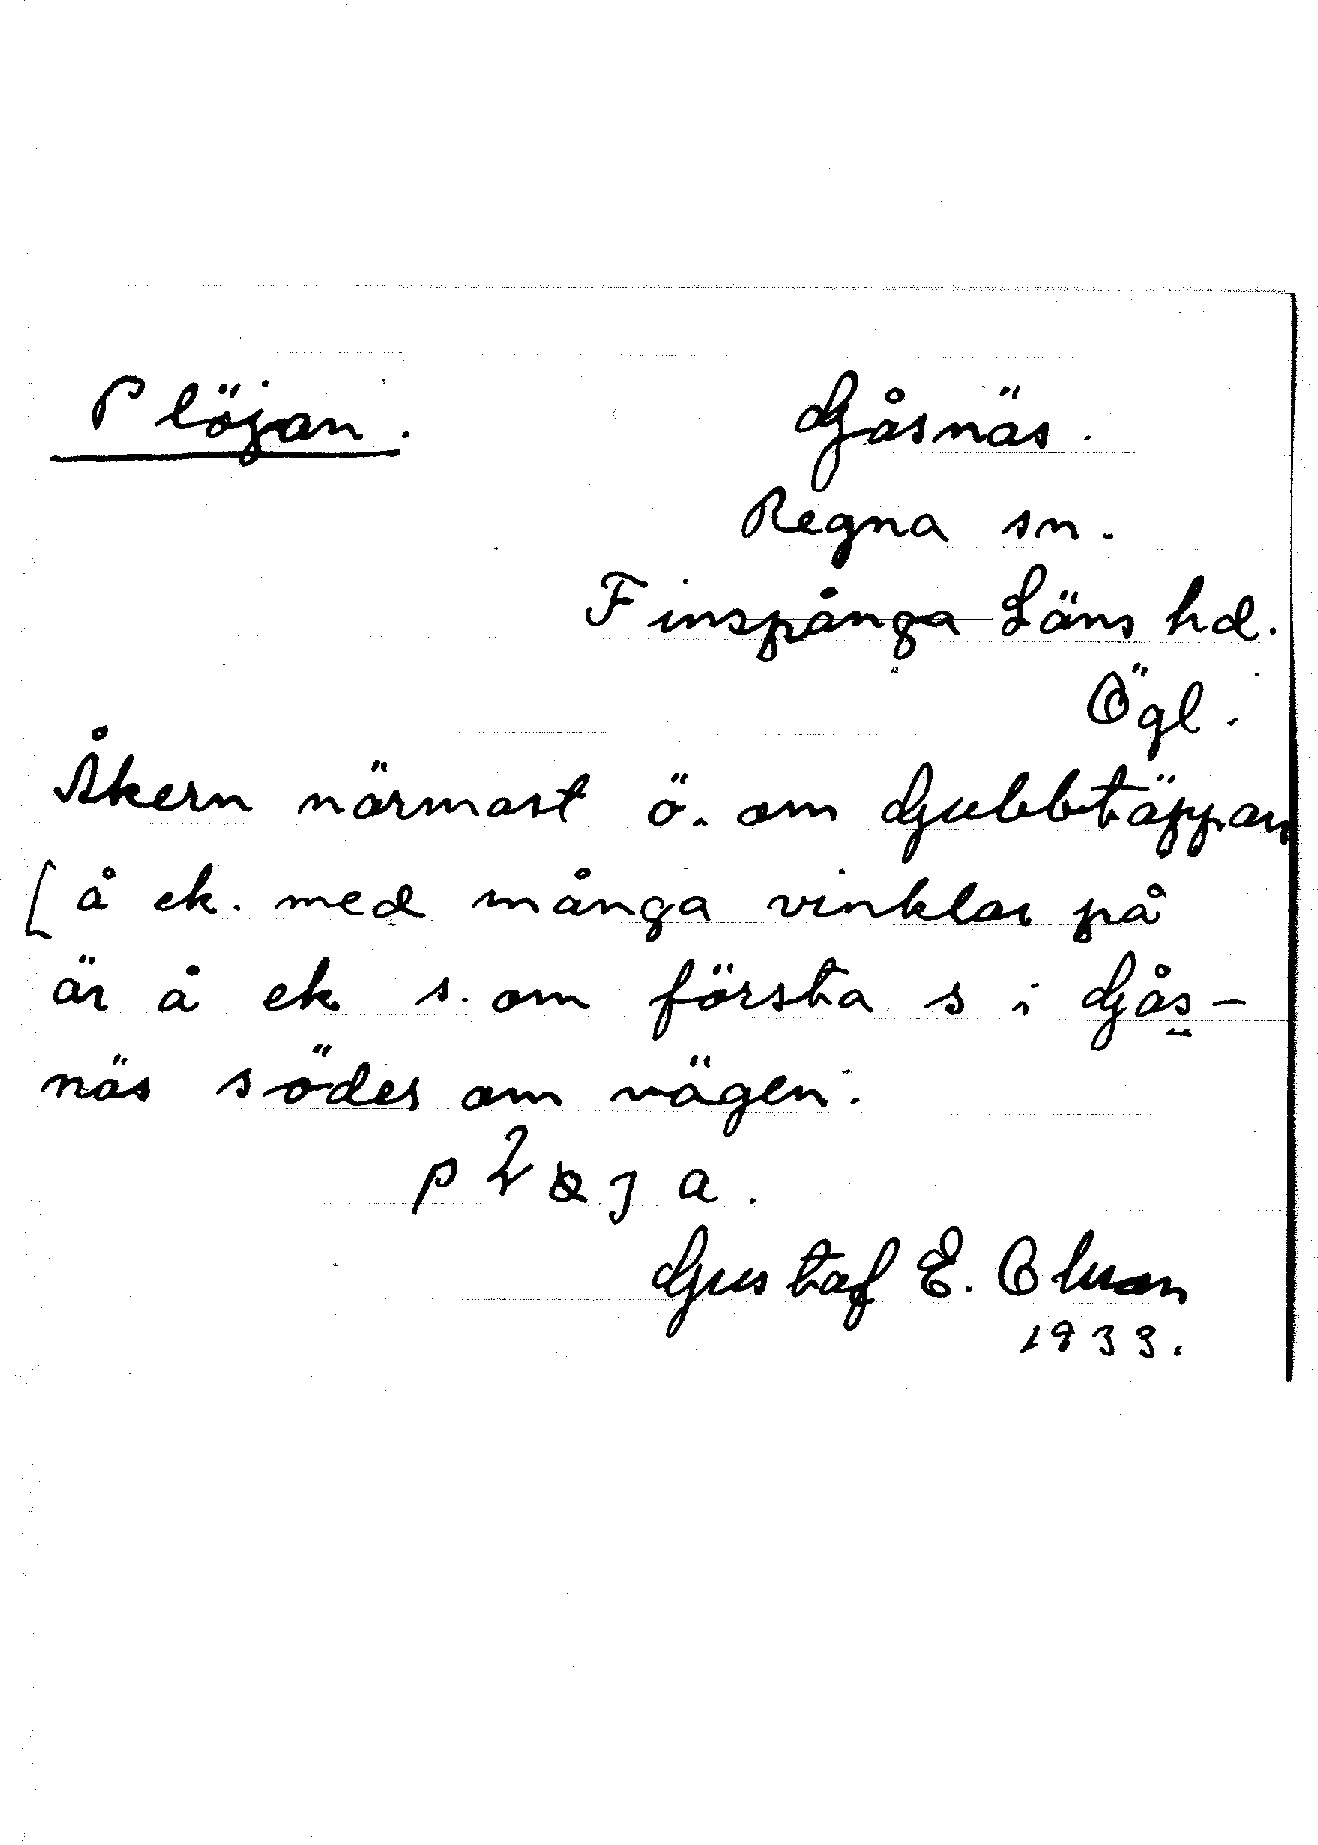 Plöjan. Gåsnäs.
Regna sn.
Finspånga Läns hd.
Ögl.
Åkern närmast ö. om Gubbtäppan
[å ek. med många vinklar på
är å ek s. om första s i Gås-
näs söder om vägen.
Gustaf E. Olsson
1933.